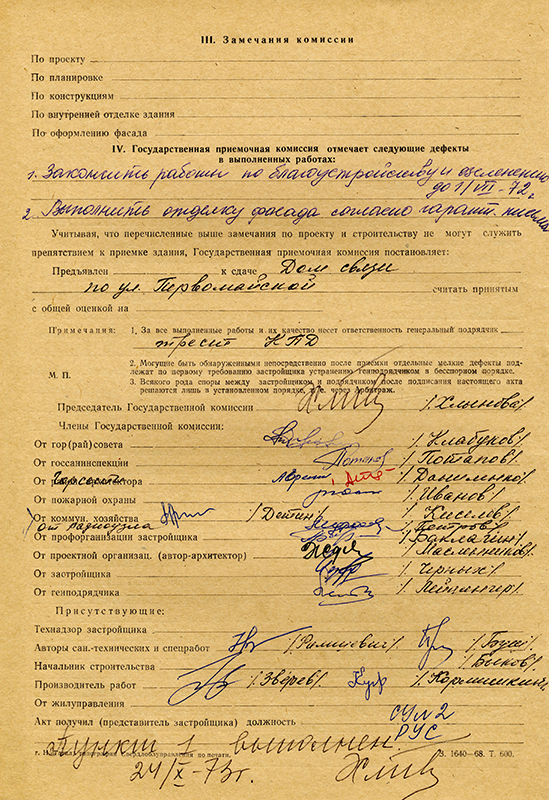 III. Замечания комиссии
По проекту
По планировке
По конструкциям
По внутренней отделке здания
По оформлению фасада
IV. Государственная приемочная комиссия отмечает следующие дефекты
в выполненных работах:
1. Закончить работы по благоустройству и озеленению
до 1/VII-72 г.
2. Выполнить отделку фасада согласно гарант. письма
Учитывая, что перечисленные выше замечания по проекту и строительству не могут служить
препятствием к приемке здания, Государственная приемочная комиссия постановляет:
Предъявлен к сдаче Дом связи
по ул. Первомайской считать принятым
с общей оценкой на
Примечания: 1. За все выполненные работы и их качество несет ответственность генеральный подрядчик
трест КПД
2. Могущие быть обнаруженными непосредственно после приемки отдельные мелкие дефекты под-
лежат по первому требованию застройщика устранению генподрядчиком в бесспорном порядке.
М. П. 3. Всякого рода споры между застройщиком и подрядчиком после подписания настоящего акта
решаются лишь в установленном порядке, т. е. через Арбитраж.
Председатель Государственной комиссии /Хлынова/
Члены Государственной комиссии:
От гор(рай)совета /Клабуков/
От госсанинспекции Потапов /Потапов/
От /Даниленко/
От пожарной охраны /Иванов/
От коммун. хозяйства /Детин/ /Киселев/
от радиоузла /Петров/
От профорганизации застройщика /Баклачин/
От проектной организац. (автор-архитектор) /Масленников/
От застройщика /Черных/
От генподрядчика
Присутствующие:
Технадзор застройщика
Авторы сан.-технических и спецработ
Начальник строительства /Быков/
Производитель работ /Зверев/
От жилуправления
Акт получил (представитель застройщика) должность СУМ 2
РУС
Пункт 1 выполнен.
З. 1640—68. Т. 600.
24/X-73г.